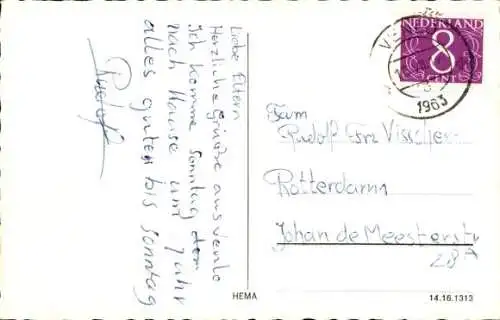 Liebe Eltern
Herzliche Grüsse aus Venlo
Ich komme Sonntag dem
nach Hause um 7 Uhr
alles guten bis Sonntag
Rudolf
NEDERLAND
8
CENT
1963
Fam
Rudolf Visscher
Rotterdam
Johan de Meesterstr
28
HEMA
14.16.1313